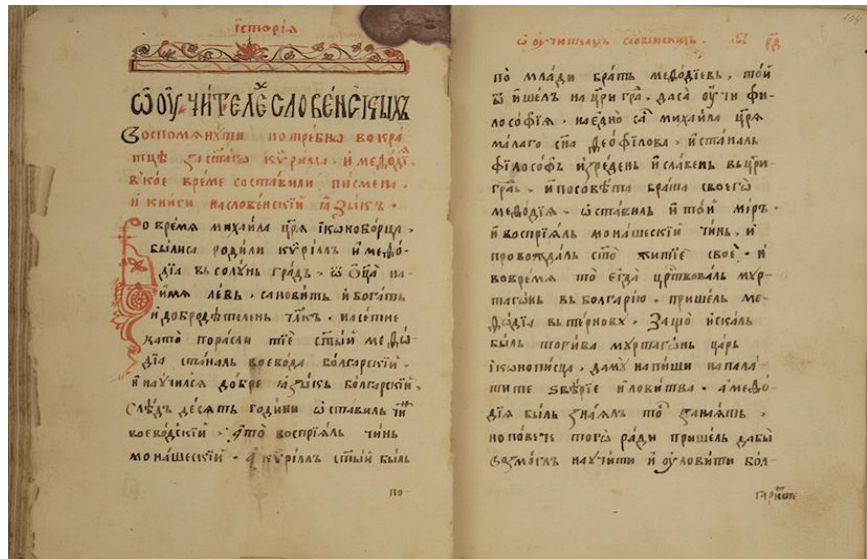 їсторїѧ
Ѡ ОУ҆ЧИ́ТЕЛЕ́ СЛОВЕ́НСКЫХЪ
Воспомѧнꙋти потребно вокра
тцѣ за ст҃аго кѷрилла. и меѳодї
в кое време составили писмена.
и книги на словенскїй ꙗзыкъ.
Во времѧ михаила цр҃ѧ їконоборца.
былисѧ родили кѷрїлъ и меѳо-
дїа въ солꙋнь градъ. ѿ ѻц҃а на
имѧ левь. сановитъ и богатъ
и добродѣтеленъ чл҃къ. насетне
като порасли тїе ст҃ый меѳо
дїа сталъ воевода болгарскїй.
и научилсѧ добре ꙗзыкъ болгарскїй.
Слѣдъ десѧть години ѡставилъ чи
воеводскїй. и воспрїѧлъ чинь
монашескїй. а кѷрїллъ ст҃ый былъ
по-
ѡ оучителѧхъ словенскихъ.
по млади братъ меѳодїевъ, той
ѿишелъ на цр҃и гра, дасѧ оучи фи-
лософїѧ. наедно са михаила цр҃ѧ
малаго сн҃а ѳеофїлова. и сталъ
фїлософъ изреденъ и славенъ въ цр҃и-
гра. и посовѣта брата своего
меѳодїѧ. ѡставилъ и той миръ.
и воспрїѧлъ монашескїй чинь, и
провождалъ ст҃о житїе свое. и
вовремѧ то егда цр҃твовалъ мур-
тагонъ въ болгарїю. пришелъ ме-
ѳодїа въ терновъ. защо искалъ
былъ тогива муртагонъ царь
їконописца, да мꙋ напиши на пала-
тите ѕвѣрїе и ловитва. а меѳо-
дїа былъ знаѧлъ то занаѧтъ,
но повече того ради пришелъ дабы
возмоглъ научити и оуловити бол-